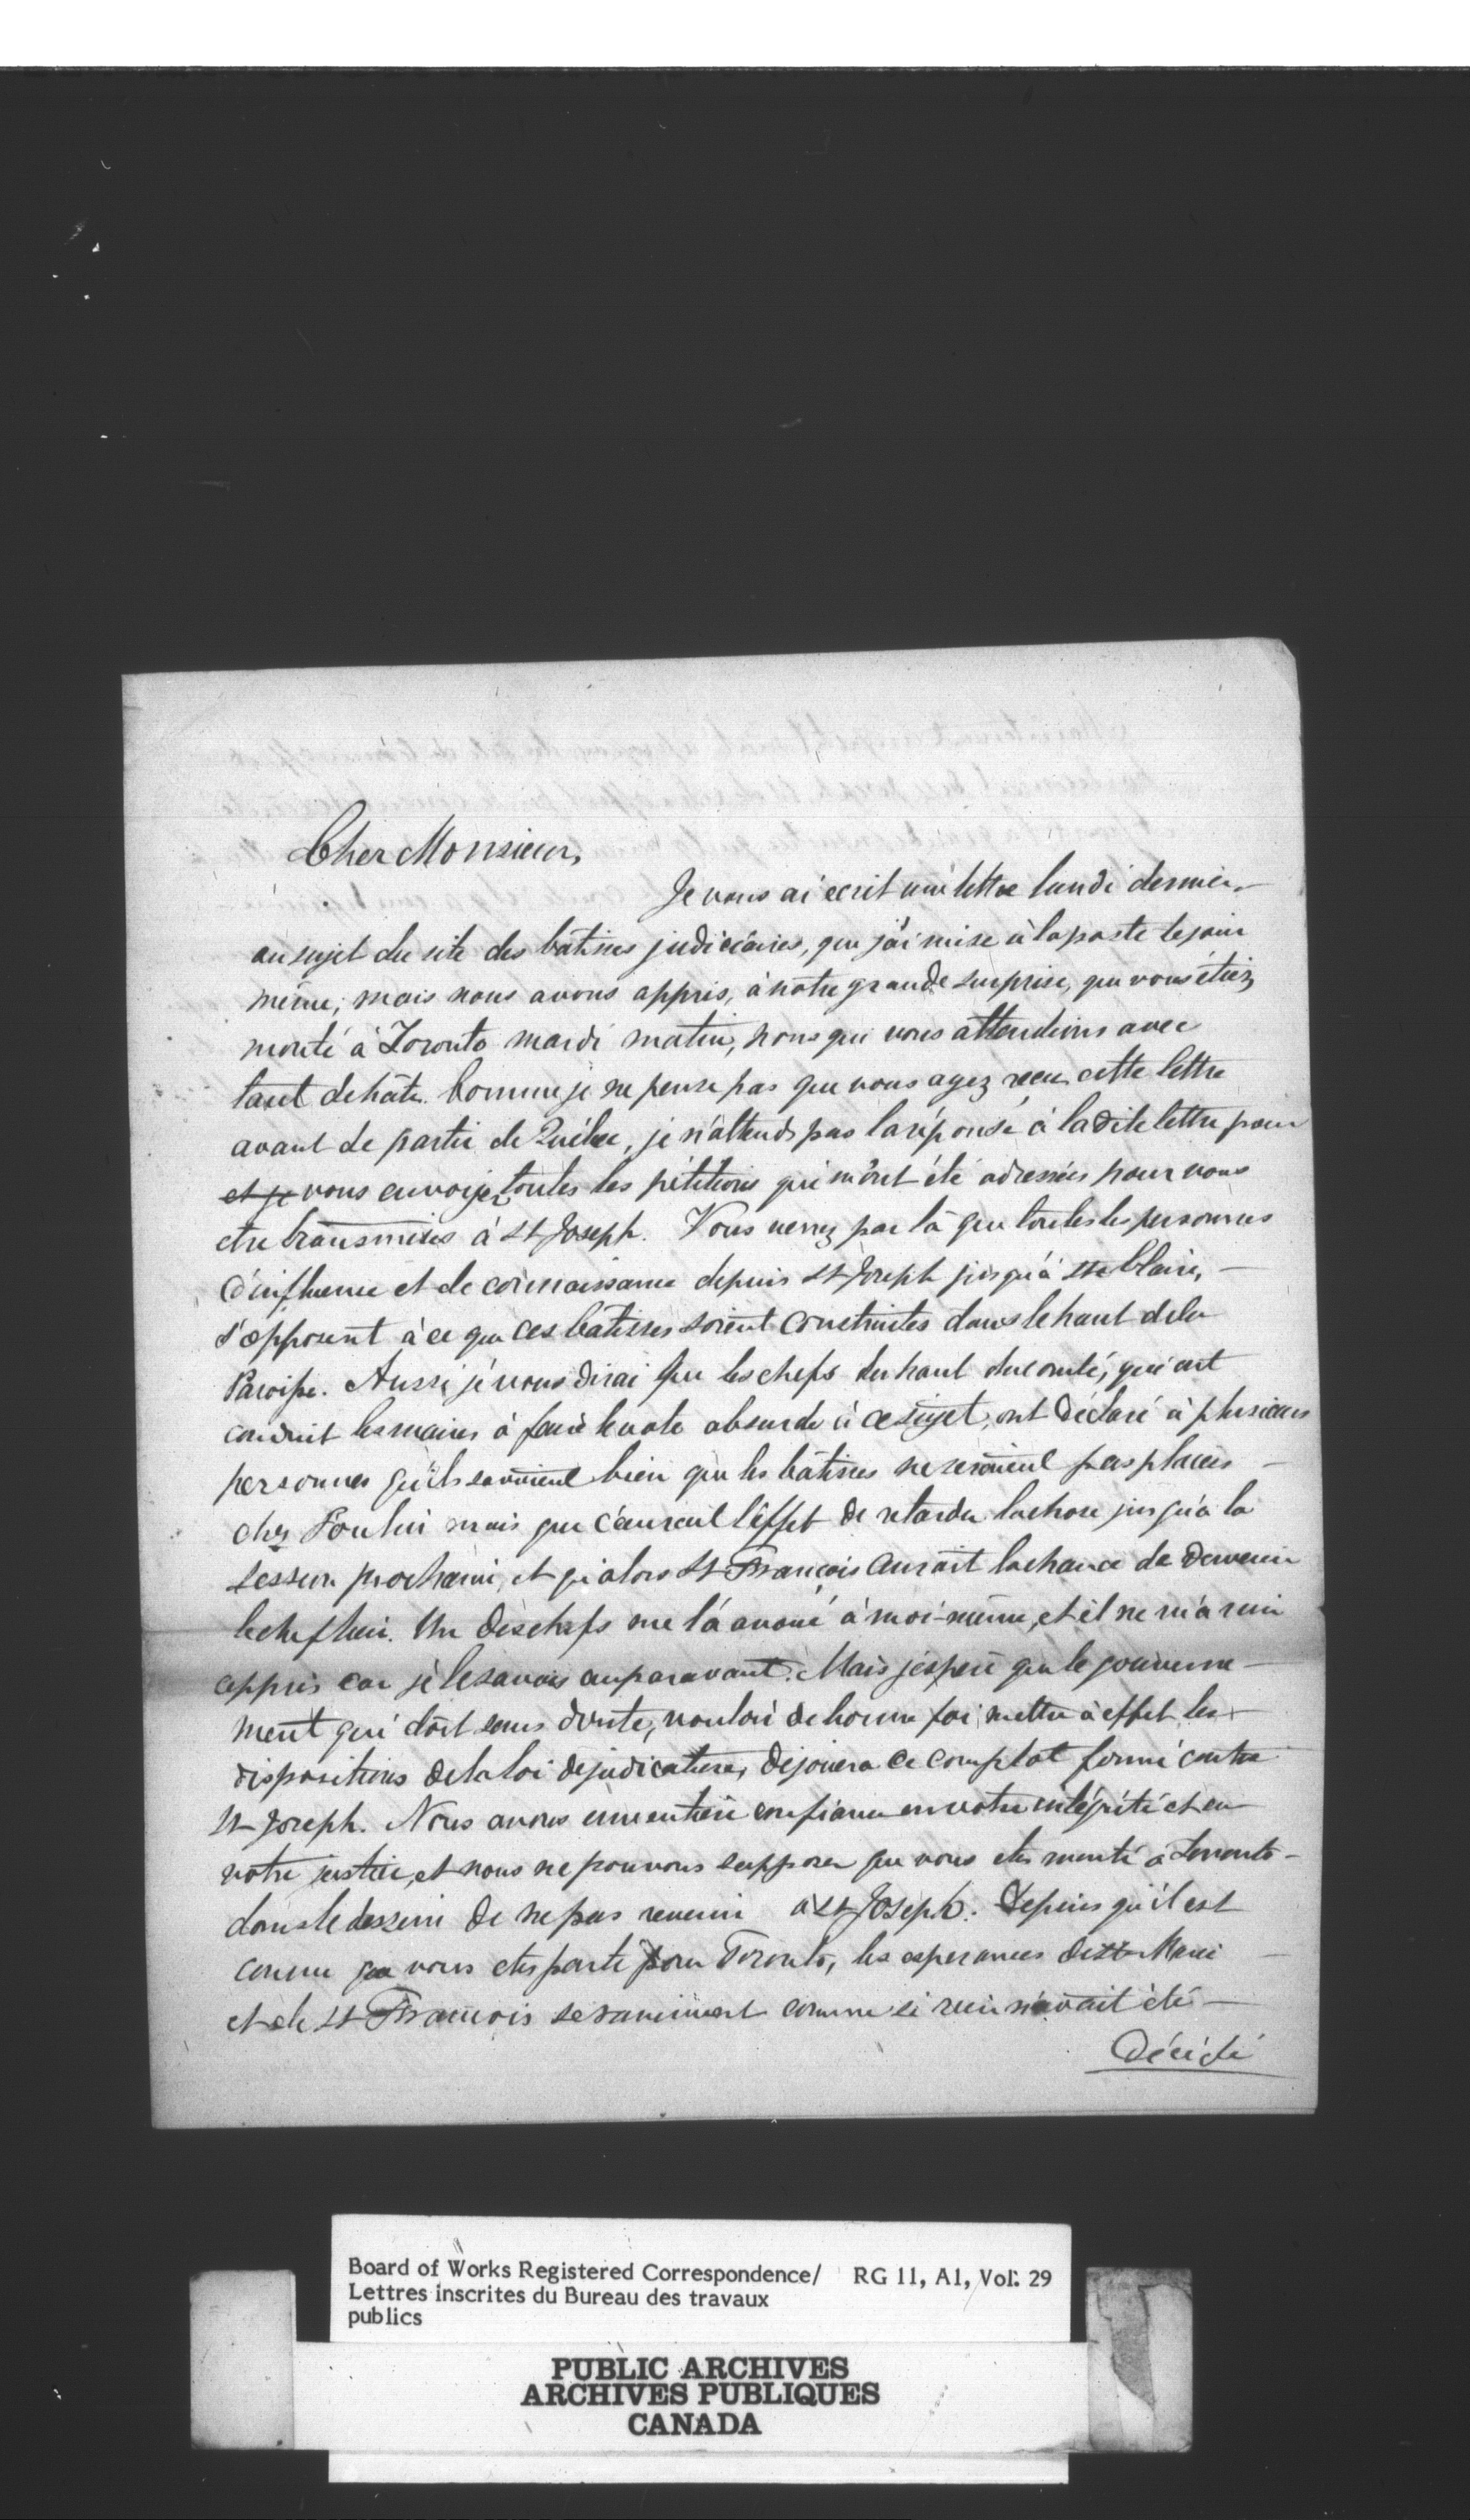 Cher Monsieur,
Je vous ai écrit une lettre lundi dernier
au sujet du site des bâtisses judiciaires, que j'ai mise à la poste le jour
même; mais nous avons appris, à notre grande surprise, que vous étiez
monté à Toronto mardi matin, nous qui vous attendions avec
tant de hâte. Comme je ne pense pas que vous ayez reçu cette lettre
avant de partir de Québec, je n'attends pas la réponse à la dite lettre pour
et je vous envoyer toutes les pétitions qui m'ont été adressées pour vous
etre transmises à St Joseph. Vous verrez par là que toutes les personnes
d'influence et de connaissance depuis St Joseph jusqu'à Ste Claire,
s'opposent à ce que ces bâtisses soient construites dans le haut de la
Paroisse. Aussi je vous dirai que les chefs du haut du comté, qui ont
conduit les maires à faire le vote absurde à ce sujet, ont déclaré à plusieurs
personnes qu'ils savaient bien que les bâtisses ne seraient pas placées
chez Poulin mais que ça aurait l'effet de retarder la chose jusqu'à la
session prochaine, et qu'alors St François aurait la chance de devenir
le chef lieu. Un des chefs me l'a avoué à moi-même, et il ne m'a rien
appris car je le savais auparavant. Mais j'espère que le gouverne-
ment qui doit sans doute, vouloir de bonne foi mettre à effet les
dispositions de la loi de judicature, déjouera ce complot formé contre
St Joseph. Nous avons une entière confiance en votre intégrité et en
votre justice, et nous ne pouvons supposer que vous etes monté à Toronto
dans le dessein de ne pas revenir à St Joseph. Depuis qu'il est
connu que vous etes parti pour Toronto, les esperances de Ste Marie
et de St François se raniment comme si rien n'avait été
Décidé
Board of Works Registered Correspondence/ RG 11, A1, Vol. 29
Lettres inscrites du Bureau des travaux
publics
PUBLIC ARCHIVES
ARCHIVES PUBLIQUES
CANADA